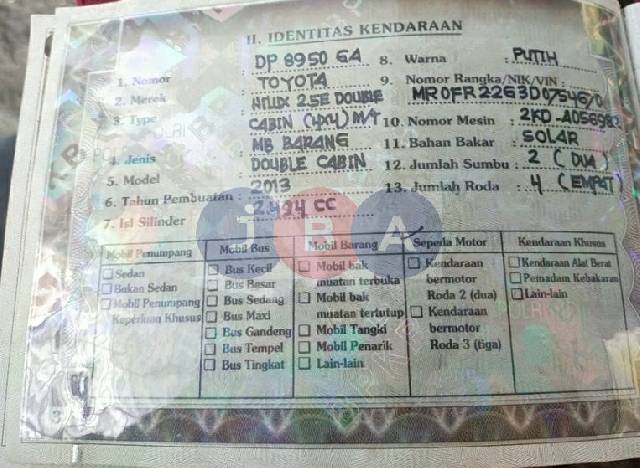 II. IDENTITAS KENDARAAN
1. Nomor : DP 8950 GA
2. Merek : TOYOTA
3. Type : HILUX 2.5E DOUBLE
CABIN (4X4) M/T
4. Jenis : MB BARANG
5. Model : DOUBLE CABIN
6. Tahun Pembuatan : 2013
7. Isi Silinder : 2.494 CC
8. Warna : PUTIH
9. Nomor Rangka/NIK/VIN :
10. Nomor Mesin :
11. Bahan Bakar : SOLAR
12. Jumlah Sumbu : 2 (DUA)
13. Jumlah Roda : 4 (EMPAT)
TBA
Mobil Penumpang
Sedan
Bukan Sedan
Mobil Penumpang
Keperluan Khusus
Mobil Bus
Bus Kecil
Bus Besar
Bus Sedang
Bus Maxi
Bus Gandeng
Bus Tempel
Bus Tingkat
Mobil Barang
Mobil bak
muatan terbuka
Mobil bak
muatan tertutup
Mobil Tangki
Mobil Penarik
Lain-lain
Sepeda Motor
Kendaraan
bermotor
Roda 2 (dua)
Kendaraan
bermotor
Roda 3 (tiga)
Kendaraan Khusus
Kendaraan Alat Berat
Pemadam Kebakaran
Lain-lain